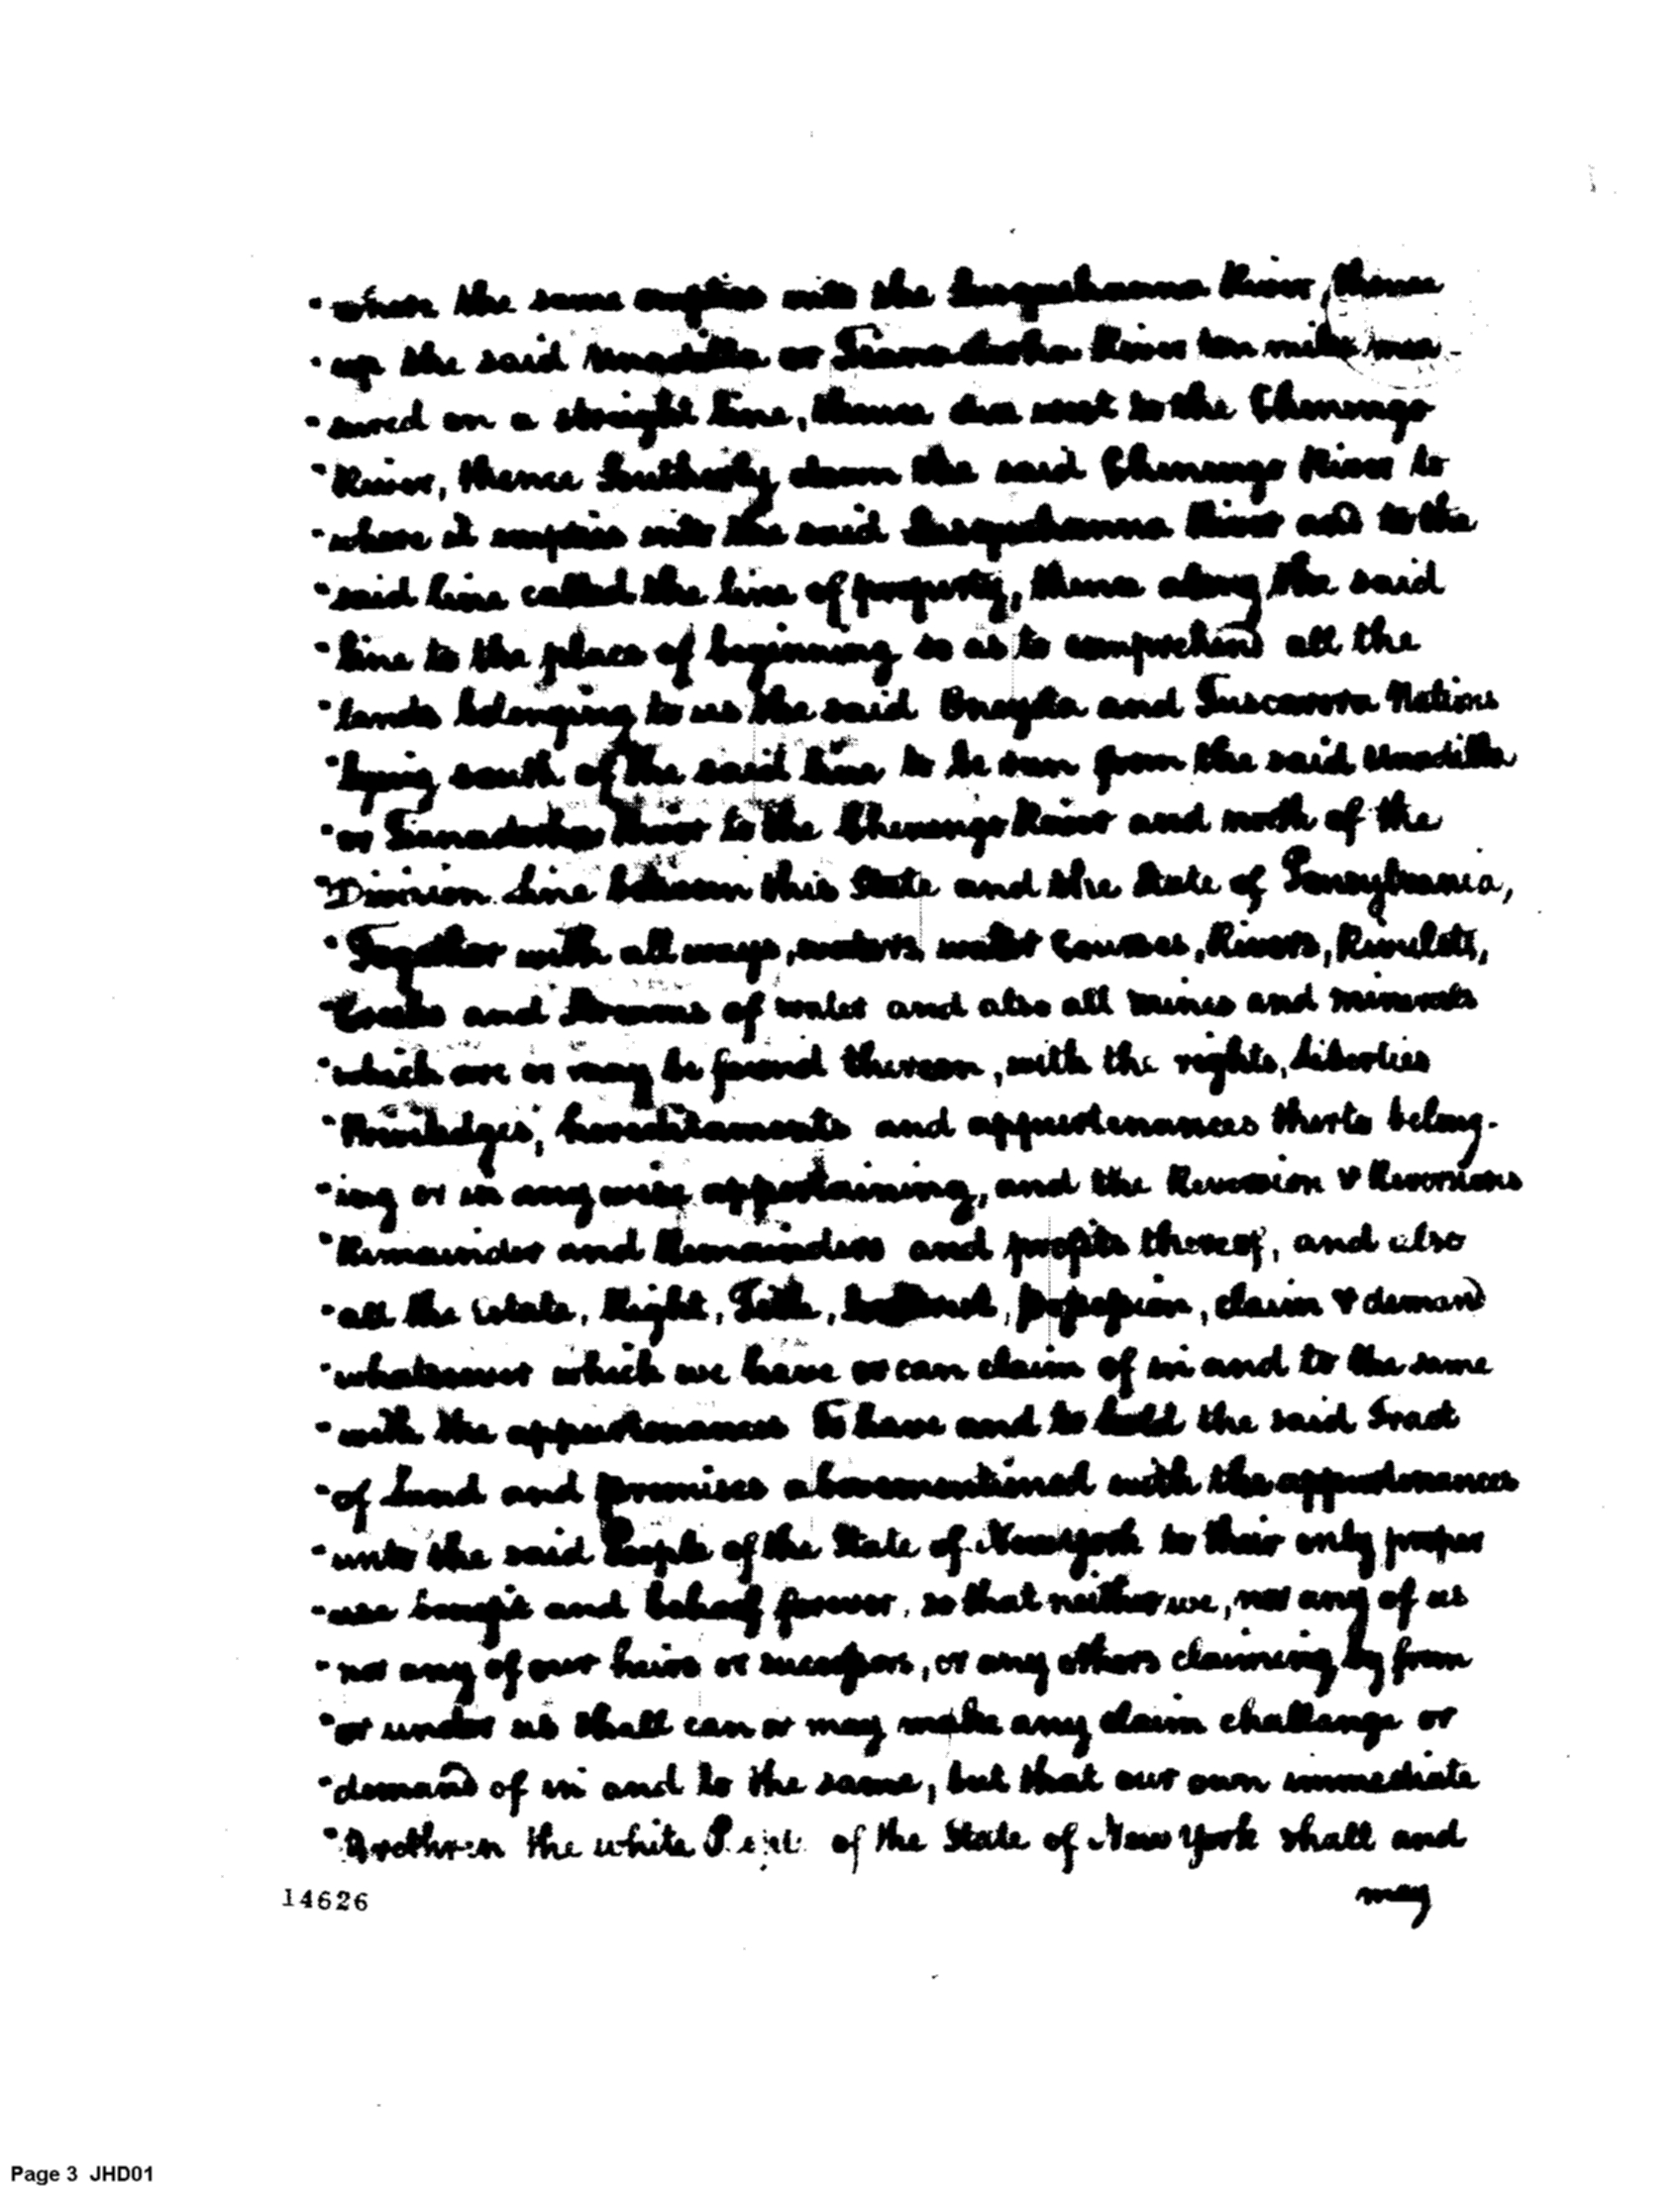 "where the same empties into the Susquehanna River, thence
"up the said Unadilla or Tianaderha River ten miles mea-
"sured on a straight line, thence due west to the Chenango
"River, thence Southerly down the said Chenango River to
"where it empties into the said Susquehanna River and to the
"said line called the line of property, thence along the said
"line to the place of beginning so as to comprehend all the
"lands belonging to us the said Oneyda and Tuscarora Nations
"lying south of the said line to be run from the said Unadilla
"or Tianaderha River to the Chenango River and north of the
"Division Line between this State and the State of Pensylvania,
"Together with all ways, waters, water Courses, Rivers, Rivulets,
"Creeks and Streams of water and also all mines and minerals
"which are or may be found thereon, with the rights, Liberties
"Priviledges, hereditaments and appurtenances thereto belong-
"ing or in any wise appertaining, and the Reversion & Reversions
"Remainder and Remainders and profits thereof, and also
"all the estate, Right, Title, Interest, possession, claim & demand
"whatsoever which we have or can claim of in and to the same
"with the appurtenances To have and to hold the said Tract
"of Land and premises abovementioned with the appurtenances
"unto the said People of the State of New york to their only proper
"use benefit and behoof forever, so that neither we, nor any of us
"nor any of our heirs or successors, or any others claiming by from
"or under us shall can or may make any claim challenge or
"demand of in and to the same, but that our own immediate
"Brethren the white People of the State of New York shall and
14626
may
Page 3 JHD01